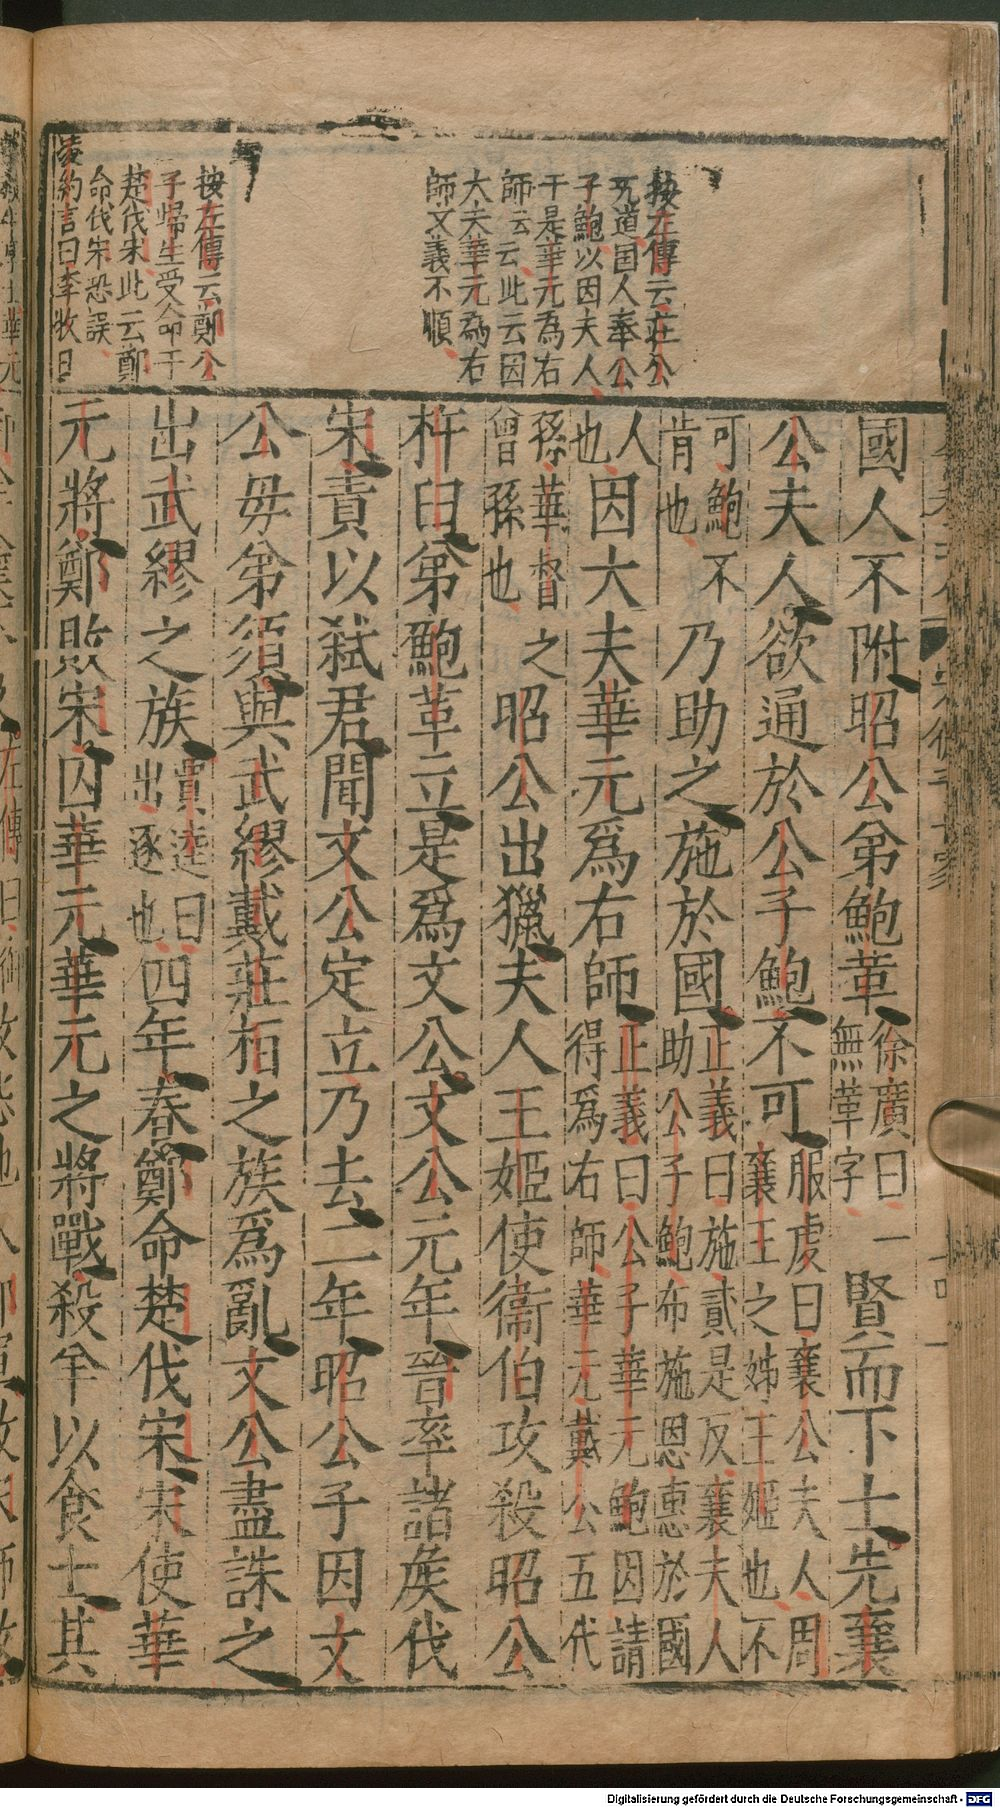 按左傳云莊公
無道国人奉公
子鮑以因夫人
于是華元為右
師云云此云因
大夫華元為右
師文義不順
按左傳云鄭公
子歸生受命于
楚伐宋此云鄭
命伐宋恐誤
凌約言曰李牧日
國人不附昭公弟鮑革徐廣曰一無革字賢而下士先襄
公夫人欲通於公子鮑不可服虔曰襄公夫人周襄王之姊王姬也不
可鮑不肯也乃助之施於國正義曰施貳是反襄夫人助公子鮑布施恩惠於國
人也因大夫華元爲右師正義曰公子華元鮑因請得爲右師華元戴公五代
孫華督曾孫也之昭公出獵夫人王姬使衞伯攻殺昭公
杵臼弟鮑革立是爲文公文公元年晉率諸侯伐
宋責以弑君聞文公定立乃去二年昭公子因文
公母弟須與武繆戴莊桓之族爲亂文公盡誅之
出武繆之族賈逵曰出逐也四年春鄭命楚伐宋宋使華
元將鄭敗宋囚華元華元之將戰殺羊以食士其
Digitalisierung gefördert durch die Deutsche Forschungsgemeinschaft - DFG